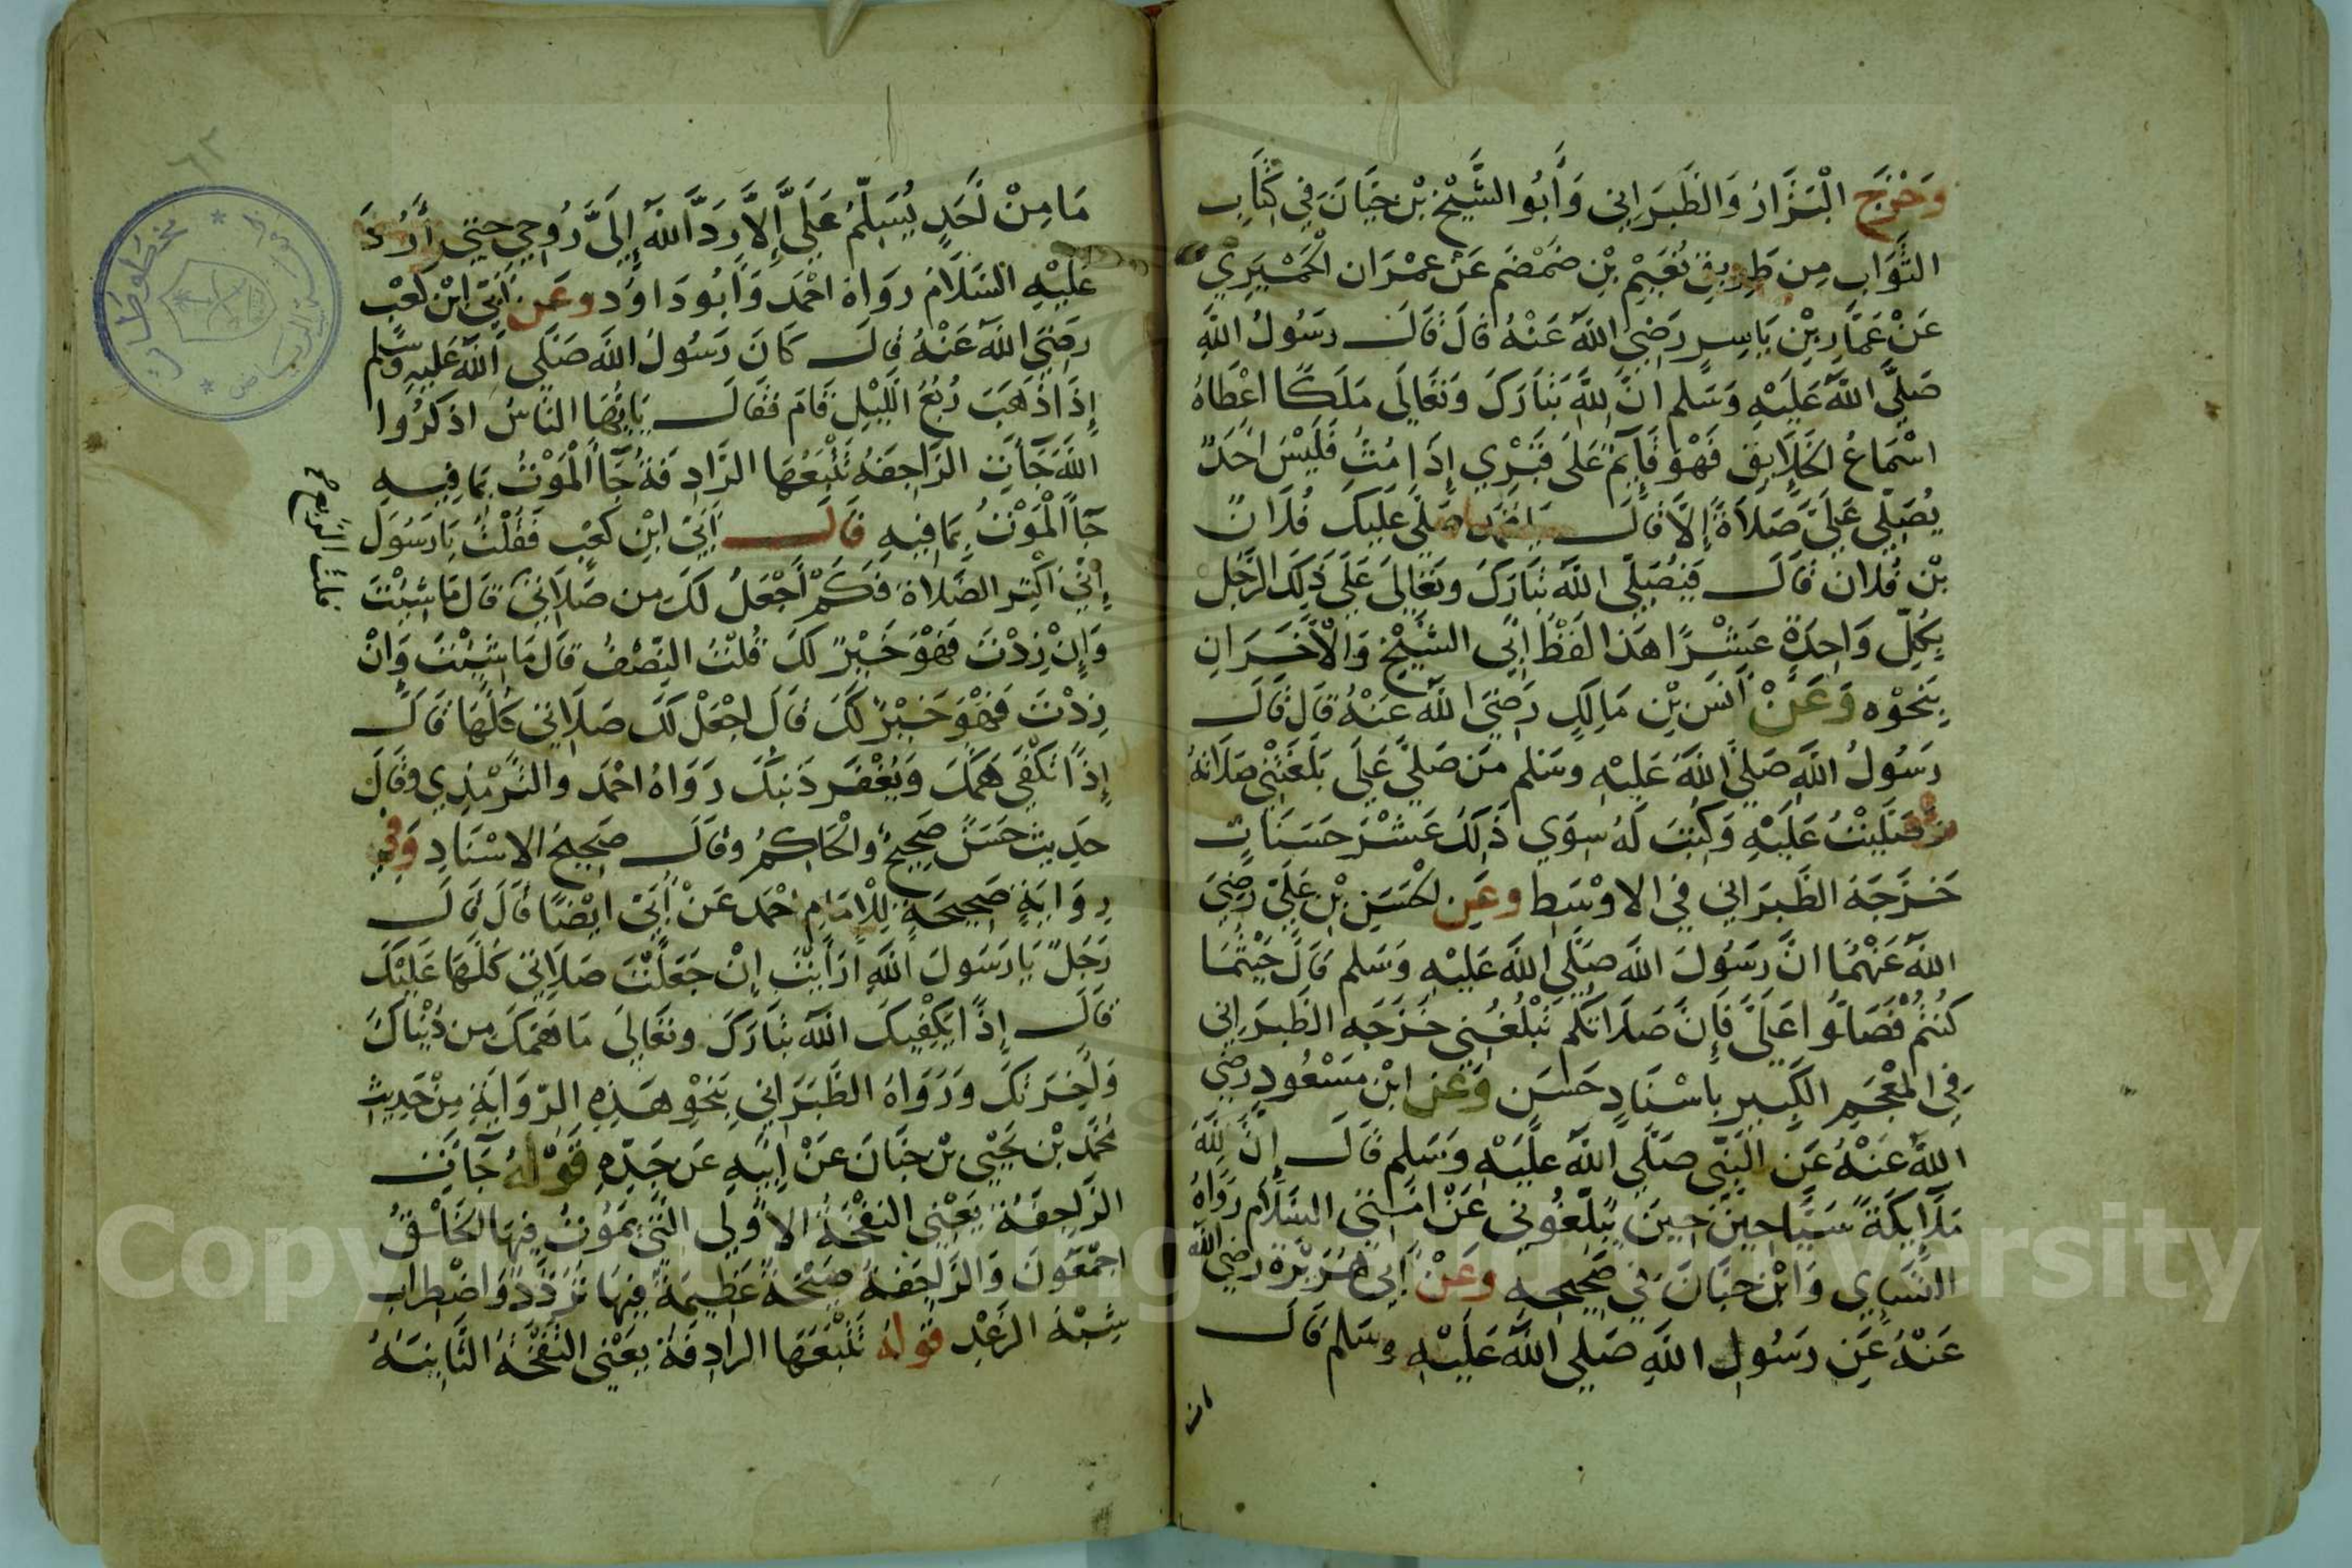 وَخَرَّجَ الْبَزَّارُ وَالطَّبَرَاني وَأَبُو الشَّيْخ بْن حَيَّانَ فِي كِتَابِ
الثَّوَابِ مِن طَرِيقِ نُعَيْم بْنِ ضَمْضَم عَنْ عِمْرَان الْحِمْيَرِيّ
عَنْ عَمَّارِ بْنِ يَاسِرٍ رَضِيَ اللَّه عَنْهُ قَالَ قَالَ رسُولُ اللَّهِ
صَلَّى اللَّه عَلَيْهِ وَسَلم انَّ لِلَّهِ تَبَارَكَ وَتَعَالَى مَلَكًا اعْطَاهُ
اسْمَاعُ الخَلَايِقِ فَهْوَ قَايِمٌ عَلَى قَبْرِي إِذَا مُتُّ فَلَيْسَ احَدٌ
يُصَلِّي عَلَيَّ صَلَاةً إِلَّا قَالَ يَا محمد صَلَّى عَلَيكَ فُلَانٌ
بْن فُلَان قَالَ فَيُصَلِّي اللَّهُ تَبَارَكَ وتَعَالَى عَلَى ذَلِكَ الرَّجُلِ
بِكُلِّ وَاحِدَةٍ عَشْرًا هَذا لَفْظُ ابِي الشَّيْخِ وَالْاخَرَانِ
بِنَحْوِهِ وَعَنْ أَنَسِ بْنِ مَالِكٍ رَضِيَ اللَّه عَنْهُ قَالَ قَالَ
رَسُولُ اللَّهِ صَلَّى اللَّهُ عَلَيْهِ وسَلم مَن صَلَّى عَلَيَّ بَلَغَتْنِي صَلَاتُهُ
وَصَلَّيْتُ عَلَيْهِ وَكُتِبَ لَهُ سِوَي ذَلِكَ عَشْرُ حَسَنَاتٍ
خَرَّجَهُ الطَّبَرَاني فِي الاوْسَطِ وعَنِ الْحَسَنِ بْنِ عَلِيّ رَضِيَ
اللَّه عَنْهُمَا انَّ رَسُولَ اللَّه صَلَّى اللَّهُ عَلَيْهِ وَسَلم قَالَ حَيْثُمَا
كُنْتُمْ فَصَلُّوا عَلَيَّ فَإِنَّ صَلَاتَكُم تَبْلُغُنِي خَرَّجَه الطَّبَرَاني
فِي المُعْجَمِ الْكَبِيرِ بِاسْنَادٍ حَسَن وَعَن ابْن مَسْعُودٍ رضِي
اللَّهُ عَنْهُ عَنِ النَّبِي صَلَّى اللَّهُ عَلَيْهِ وَسَلم قَالَ إِنَّ لِلَّهِ
مَلَايِكَةً سَيَّاحِينَ يُبَلِّغُونِي عَنْ امَّتِي السَّلَامَ رَوَاهُ
النَّسَاي وَابْن حِبَّانَ فِي صَحِيحِهِ وعَنْ أَبِي هُرَيْرَةَ رضِيَ اللَّه
عَنْهُ عَن رَسُولِ اللَّهِ صَلَّى اللَّهُ عَلَيْهِ وسَلم قَالَ
مَا مِنْ أَحَدٍ يُسَلِّمُ عَلَيَّ إِلَّا رَدَّ اللَّهُ إِلَيَّ رُوحِي حَتَّي أَرُدَّ
عَلَيْهِ السَّلَامَ رَوَاهُ احْمَد وَأَبُو دَاوُد وعَن أُبَيّ ابْنِ كَعْبٍ
رَضِيَ اللَّه عَنْهُ قَالَ كَانَ رَسُولُ اللَّه صَلَّى اللَّهُ عَلَيهِ وسَلم
إِذَا ذَهَبَ رُبُعُ اللَّيْلِ قَامَ فَقَالَ يَايُّهَا النَّاسُ اذكُرُوا
اللَّهَ جَاءَتِ الرَّاجِفَةُ تَتْبَعُهَا الرَّادِفَةُ جَاءَ الْمَوْتُ بِمَا فِيهِ
جَاءَ الْمَوْتُ بِمَا فِيهِ قَالَ أُبَيّ ابْنِ كَعْبٍ فَقُلْتُ يَا رَسُولَ
إِنِّي اكْثِر الصَّلَاةَ فَكَمْ أَجْعَلُ لَكَ مِن صَلَاتِي قَالَ مَا شِيْتَ
وَإِنْ زِدْتَ فَهْوَ خَيْرٌ لَكَ قُلْتُ النِّصْفُ قَالَ مَا شِيْتَ وَإِنْ
زِدْتَ فَهْوَ خَيْرٌ لَكَ قَالَ اجْعَلْ لَكَ صَلَاتي كُلَّهَا قَالَ
إِذًا تُكْفَى هَمَّكَ وَيُغْفَر ذَنْبُكَ رَوَاهُ احْمَد والتِّرْمِذِي وقَالَ
حَدِيث حَسَنٌ صَحِيحٌ وَالْحَاكِمُ وقَالَ صَحِيحُ الاسْنَادِ وَفِي
رِوَايَةٍ صَحِيحَةٍ لِلْامَامِ احْمَد عَنْ أُبَيّ ايْضًا قَالَ قَالَ
رَجُلٌ يَا رَسُولَ اللَّهِ ارَايْتَ إِنْ جَعَلْتُ صَلَاتِي كُلَّهَا عَلَيْكَ
قَالَ إِذًا يَكْفِيكَ اللَّهُ تَبَارَكَ وتَعَالَى مَا هَمَّكَ مِن دُنْيَاكَ
وَاخِرَتكَ وَرَوَاهُ الطَّبَرَاني بِنَحْوِ هَذِهِ الرِّوَايَةِ مِنْ حَدِيثِ
مُحَمَّد بْن يَحْيَى بْن حَبَّانَ عَنْ ابِيهِ عَن جَدِّهِ قَوْلهُ جَاءَت
الرَّاجِفَةُ يَعْنِي النَّفْخَةُ الاولَي الَّتِي يَمُوتُ فِيهَا الخَلْقُ
اجْمَعُونَ وَالرَّاجِفَةُ صَيْحَةٌ عَظِيمَةٌ فِيهَا تَرَدُّدٌ وَاضْطِرَاب
شِبْهَ الرَّعْدِ قَولهُ تَتْبَعُهَا الرادِفَةُ يَعْنِي النَّفْخَةُ الثَّانِيَةُ
قلت الربع
مخطوطات
Copyright © King Saud University